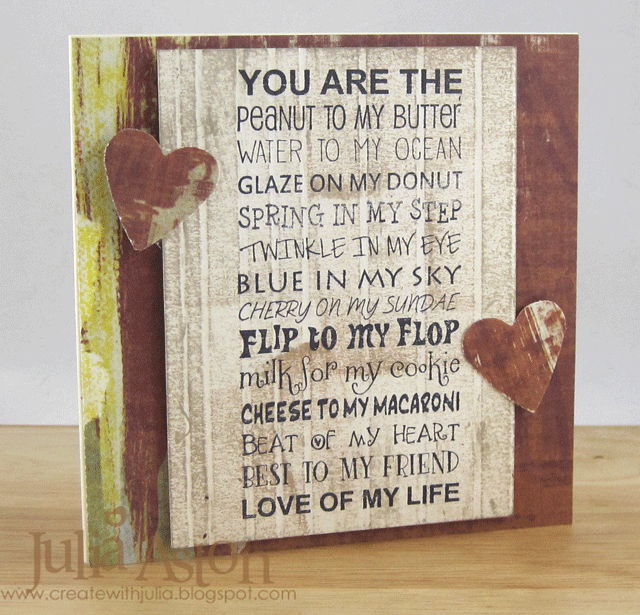 YOU ARE THE
PEANUT TO MY BUTTER
WATER TO MY OCEAN
GLAZE ON MY DONUT
SPRING IN MY STEP
TWINKLE IN MY EYE
BLUE IN MY SKY
CHERRY ON MY SUNDAE
FLIP to MY FLOP
milk for my cookie
CHEESE TO MY MACARONI
BEAT OF MY HEART
BEST TO MY FRIEND
LOVE OF MY LIFE
Julia Aston
www.createwithjulia.blogspot.com